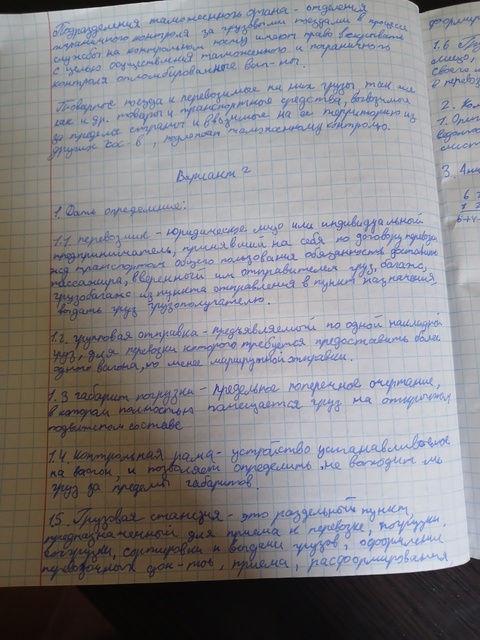 Подразделения таможенного органа - отделения
пограничного контроля за грузовыми поездами в процессе
службы на контрольном посту имеют право вскрывать
с целью осуществления таможенного и пограничного
контроля опломбированные ваг-ны.
Товарные поезда и перевозимые на них грузы, так же
как и др. товары и транспортные средства, вывозимые
за пределы страны и ввозимые на её территорию из
других гос-в, подлежат таможенному контролю.
Вариант 2
1. Дать определение:
1.1 перевозчик - юридическое лицо или индивидуальный
предприниматель, принявший на себя по договору перевозки
жд транспортом общего пользования обязанность доставить
пассажира, вверенный им отправителем груз, багаж,
грузобагаж из пункта отправления в пункт назначения,
выдать груз грузополучателю.
1.2. групповая отправка - предъявляемый по одной накладной
груз, для перевозки которого требуется предоставить более
одного вагона, но менее маршрутной отправки.
1.3 габарит погрузки - предельное поперечное очертание,
в котором полностью помещается груз на открытом
подвижном составе
1.4 контрольная рама - устройство устанавливаемое
на вагон, и позволяет определить не выходит ли
груз за пределы габаритов.
1.5. Грузовая станция - это раздельный пункт,
предназначенный для приема к перевозке, погрузки,
выгрузки, сортировки и выдачи грузов, оформления
перевозочных док-тов, приема, расформирования
формир
1.6 Гру
лицо,
своего и
в перевоз
2.
1.
3.